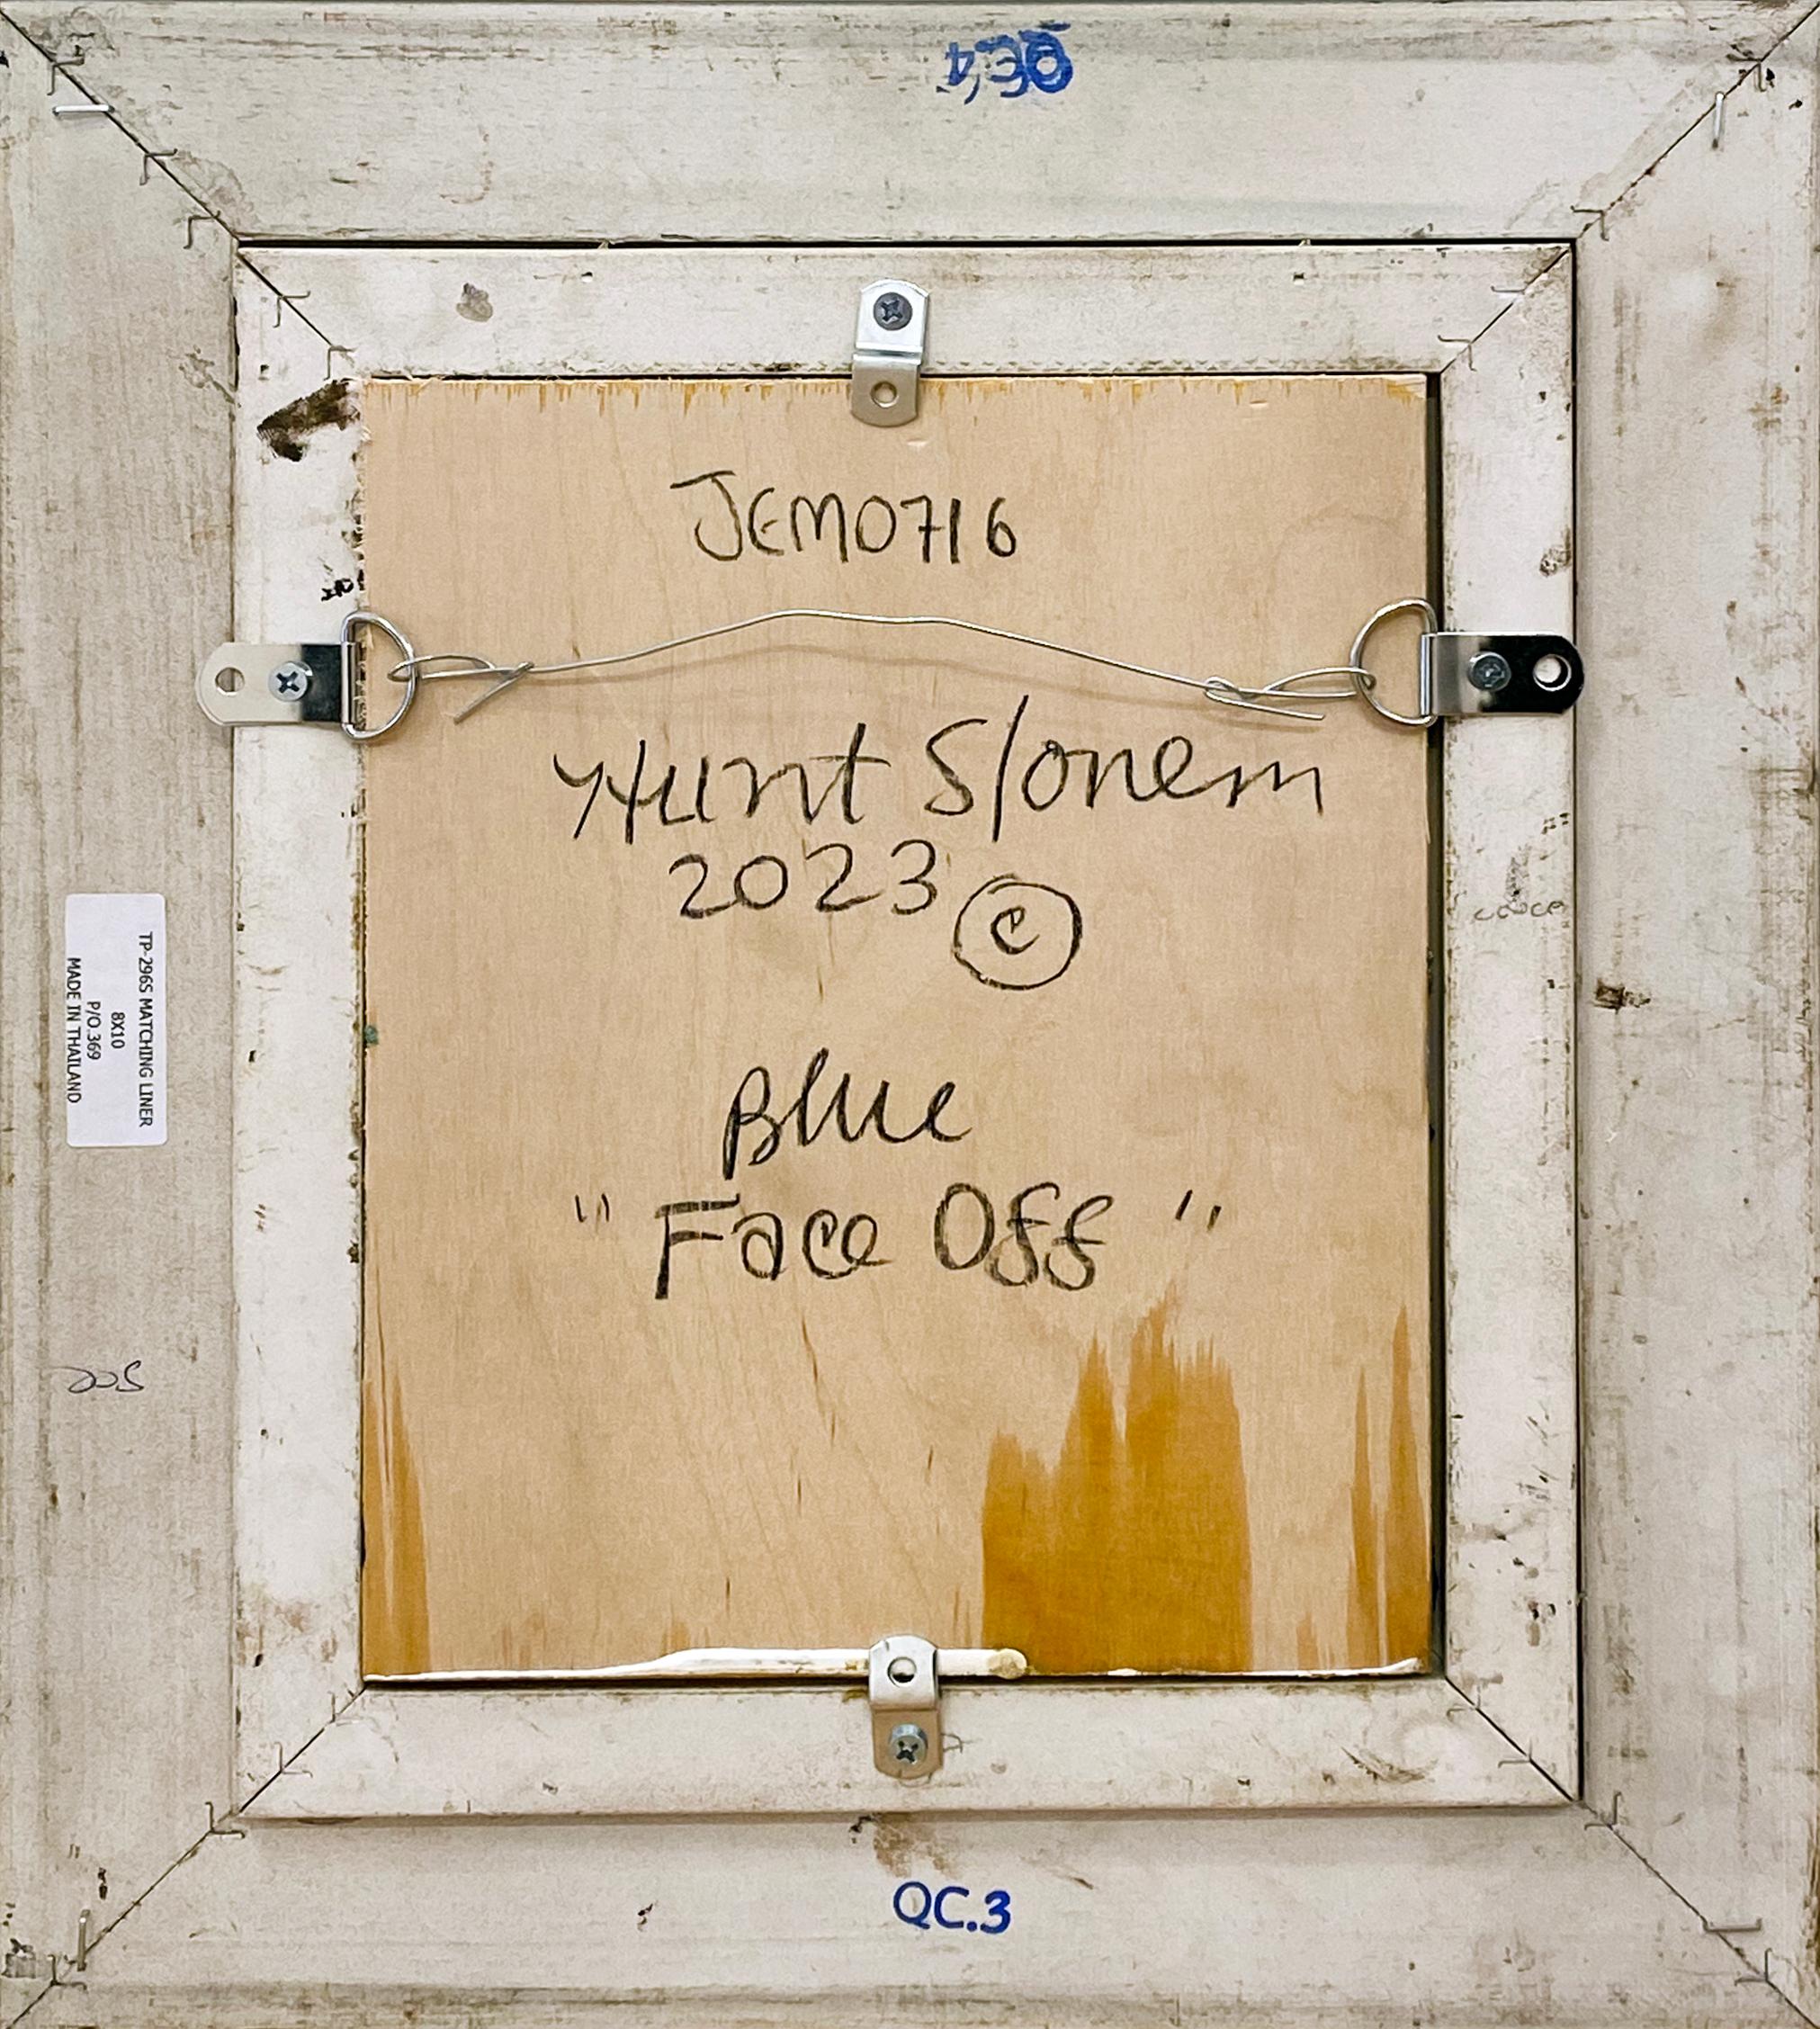 QC.4
JEM0716
Hunt Slonem
2023 ©
Blue
"Face Off"
TP-296S MATCHING LINER
8X10
P/O.369
MADE IN THAILAND
QC.3